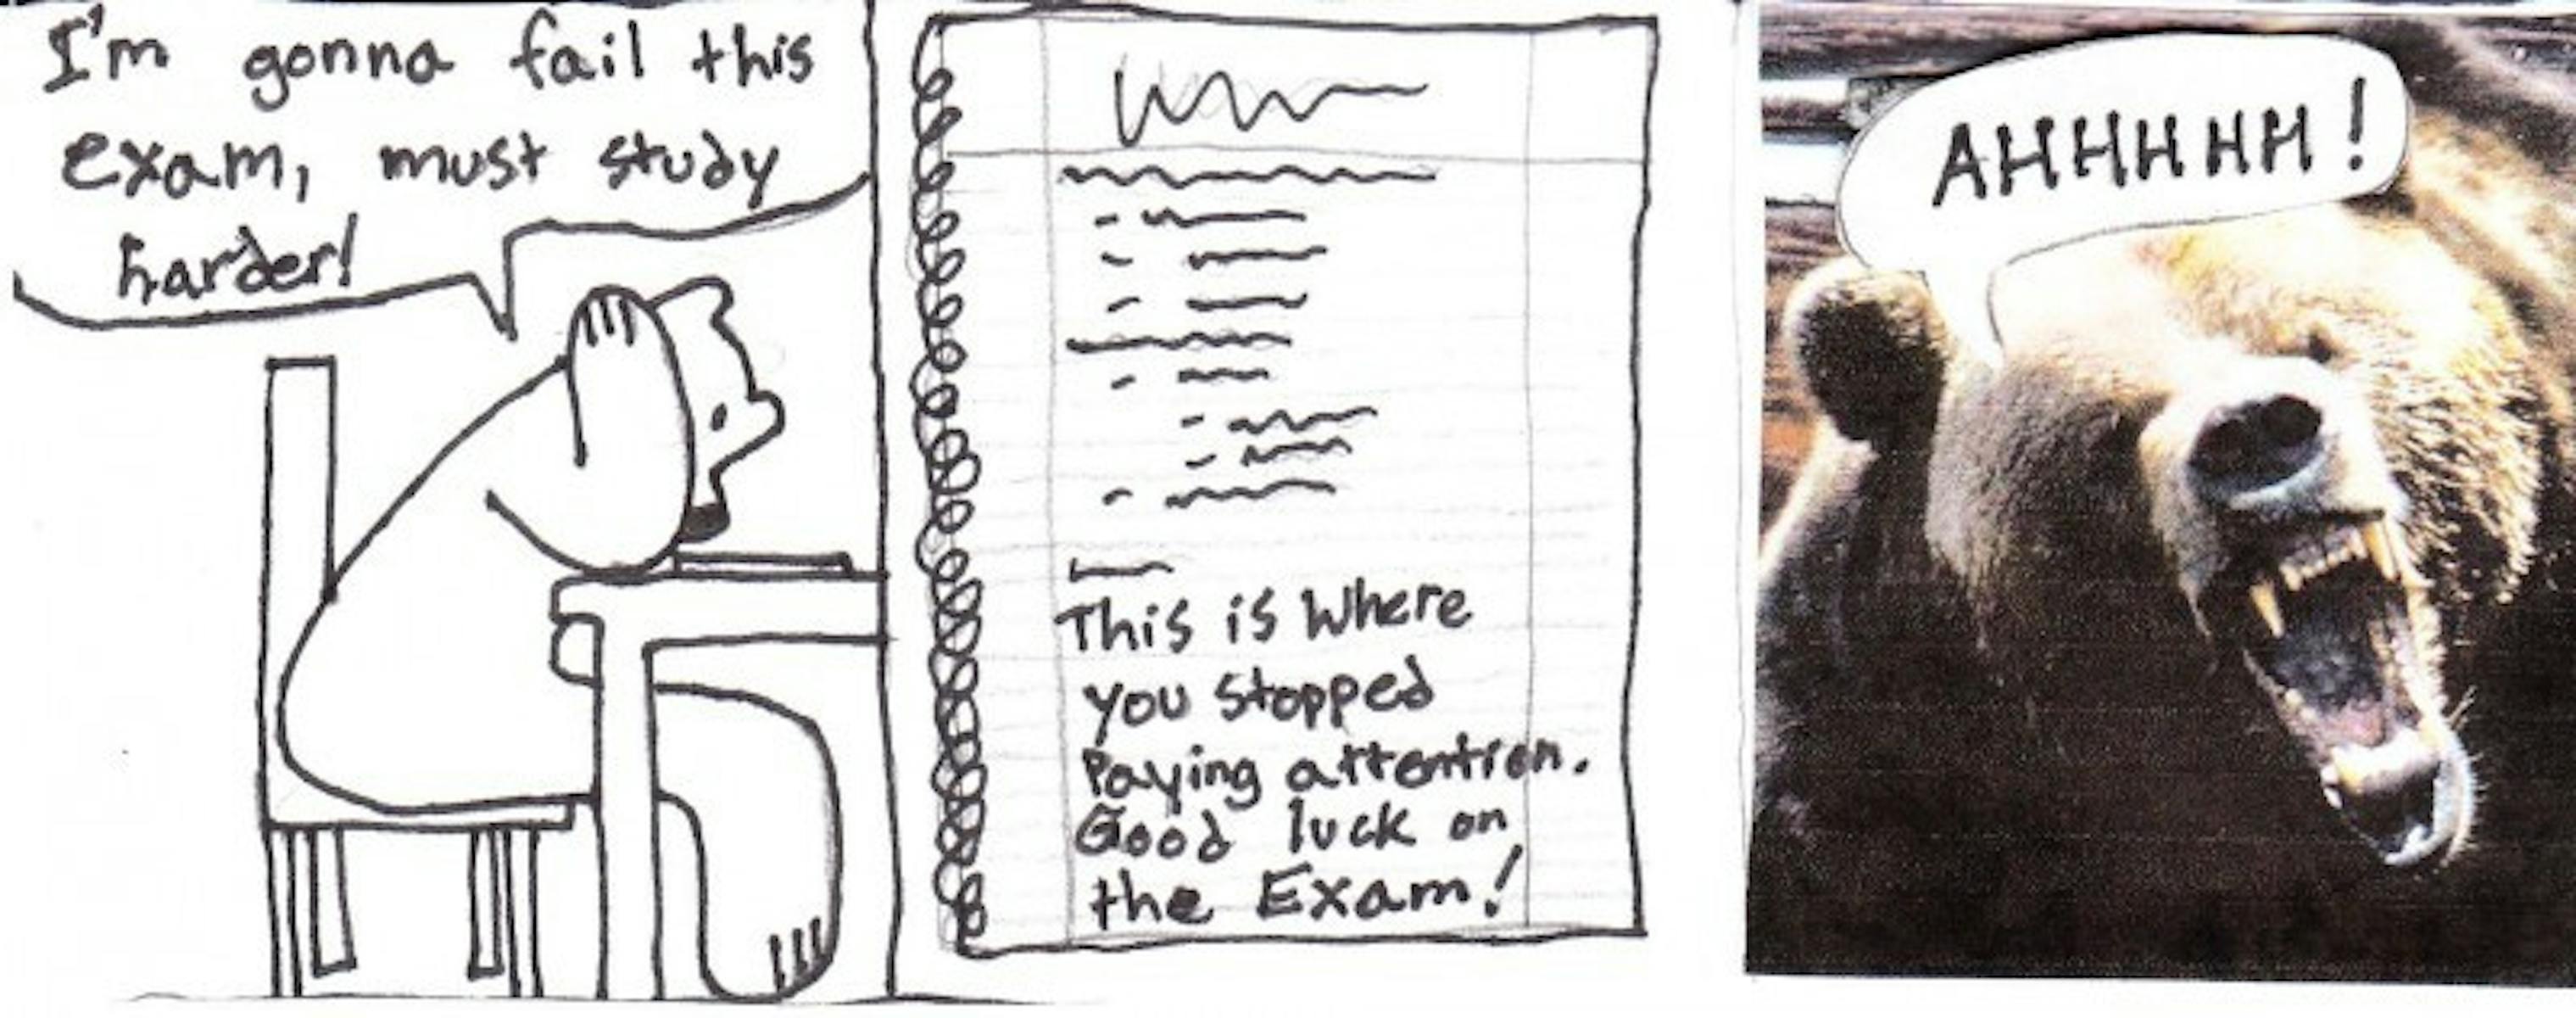 I'm gonna fail this
exam, must study
harder!
This is Where
you stopped
Paying attention.
Good luck on
the Exam!
AHHHHH!